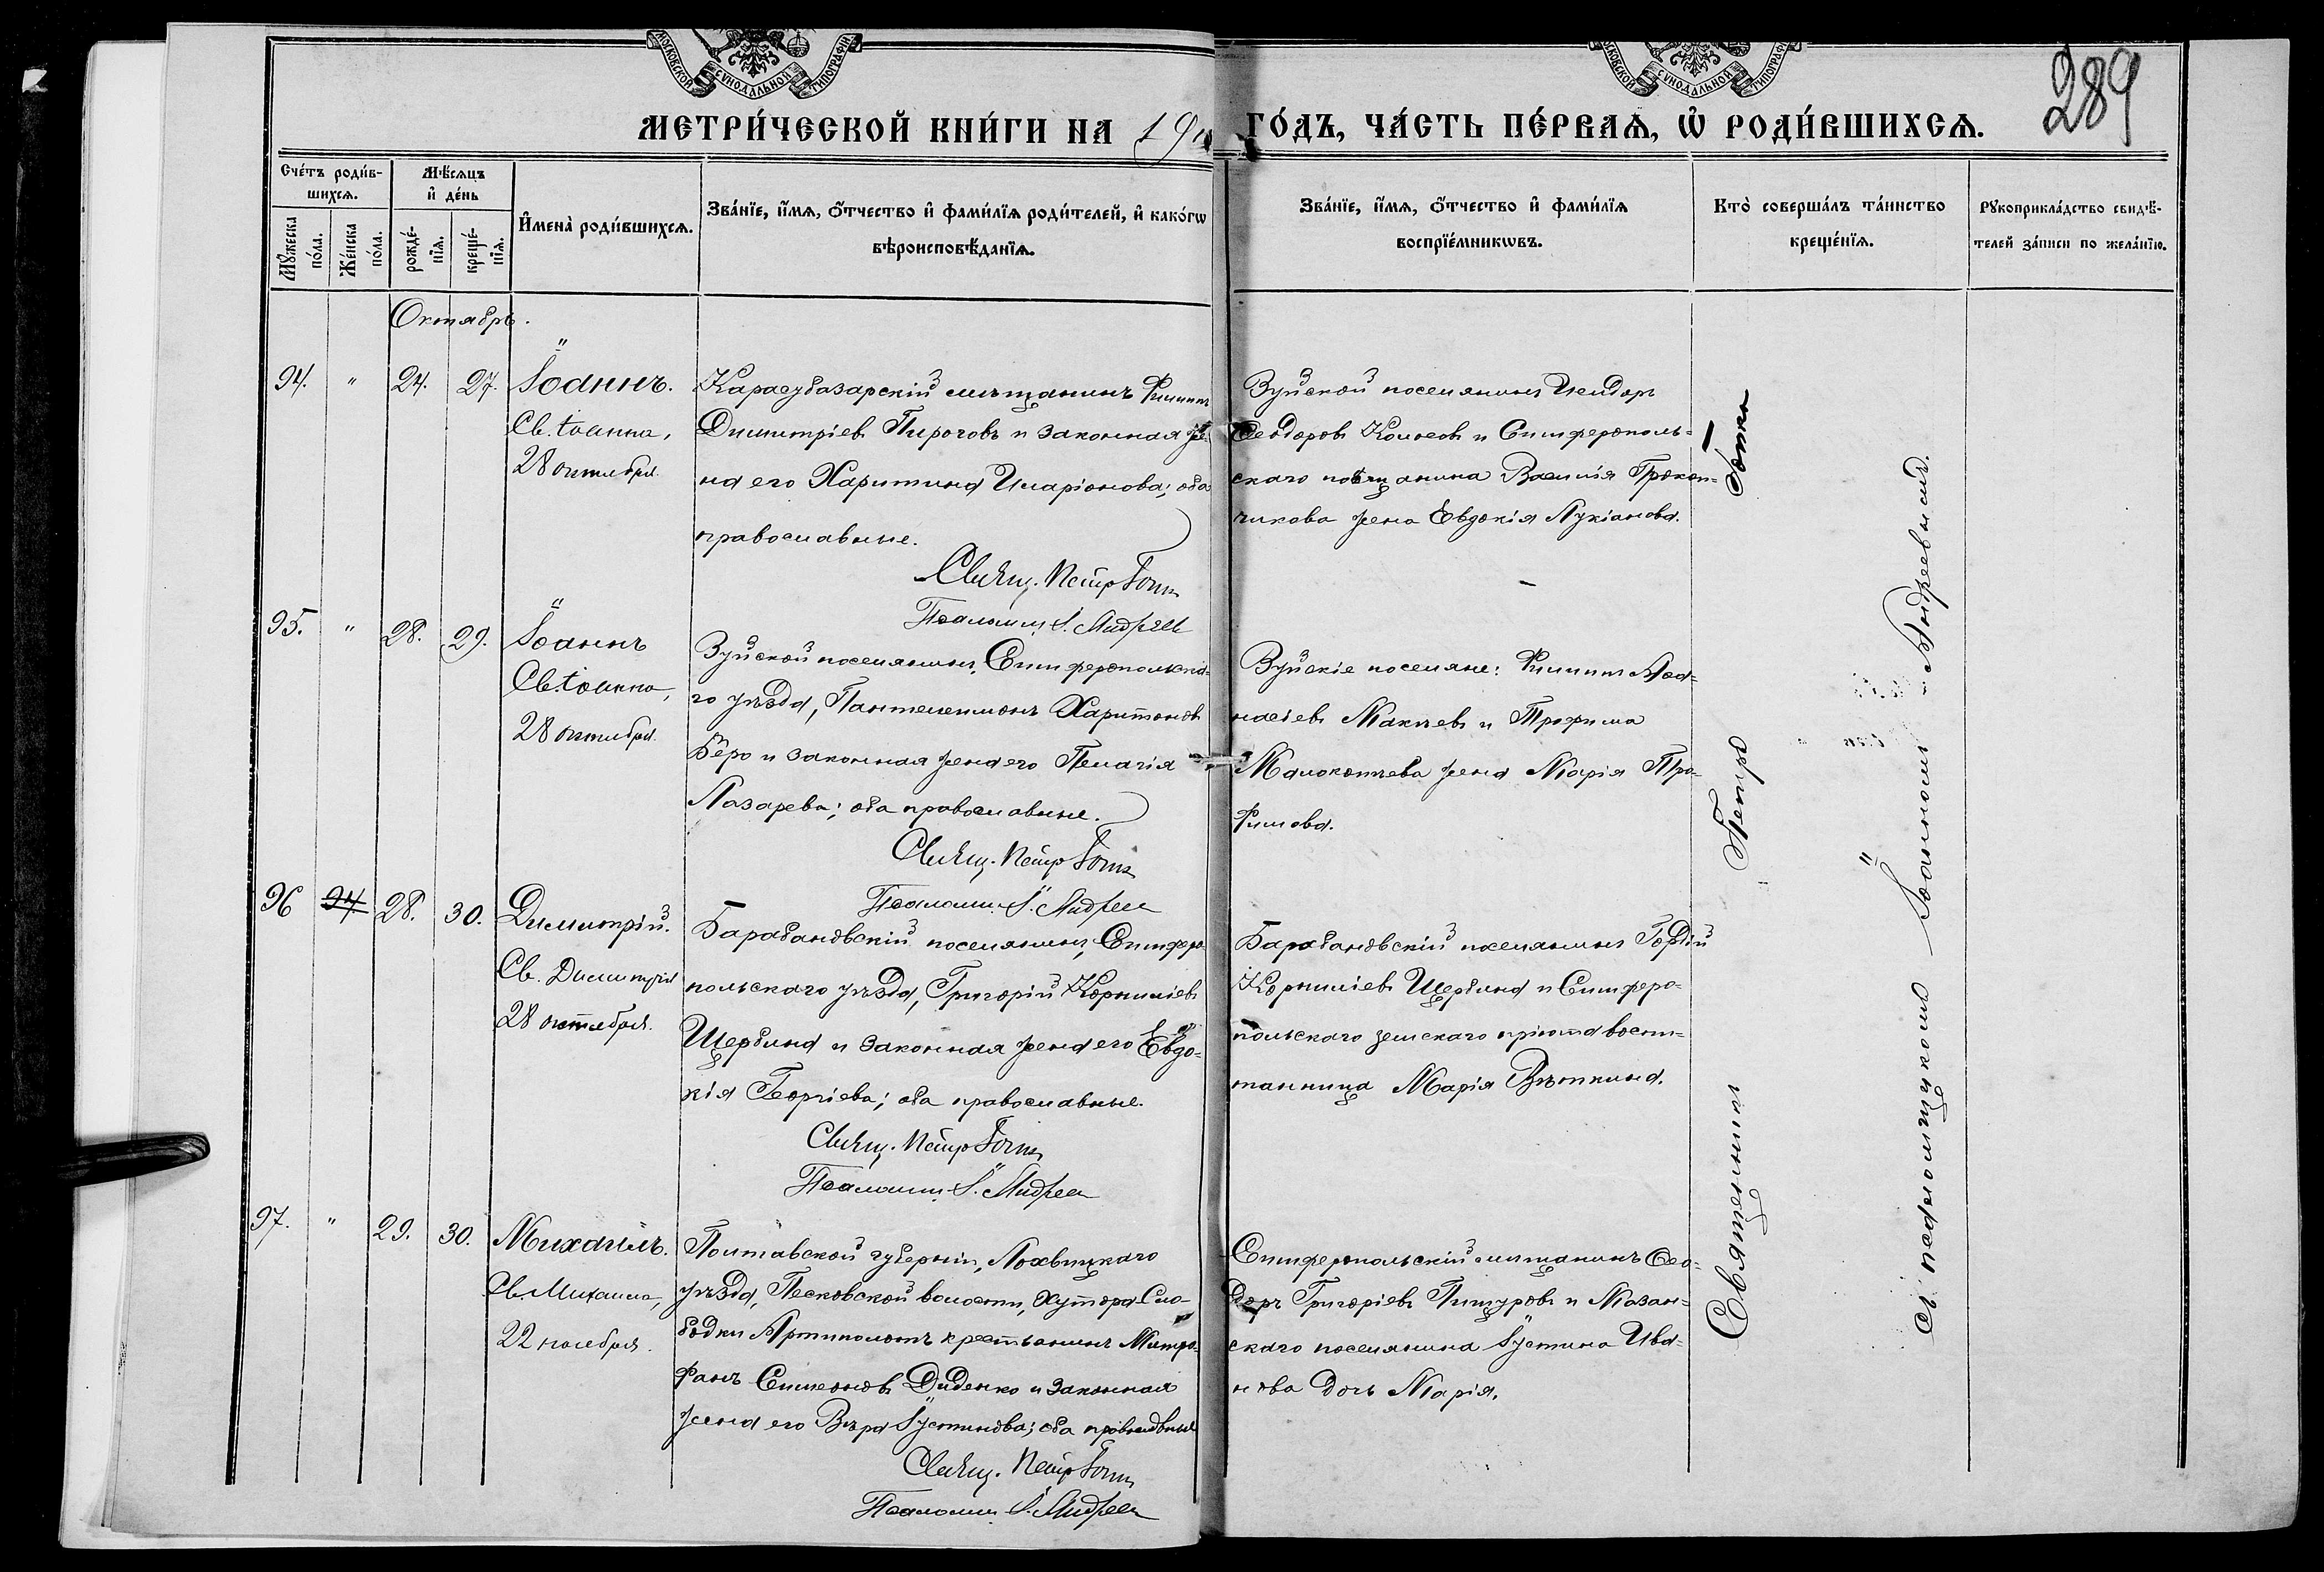 МОСКОВСКОЙ СУНОДАЛЬНОЙ ТИПОГРАФІИ
МОСКОВСКОЙ СУНОДАЛЬНОЙ ТИПОГРАФІИ
289
МЕТРИ́ЧЕСКОЙ КНИ́ГИ НА 19 ГО́ДЪ, ЧА́СТЬ ПЕ́РВАѦ, Ѡ҆ РОДИ́ВШИХСѦ.
Сче́тъ роди́в-
шихсѧ.
Мꙋ́жеска по́ла.
Же́нска по́ла.
Мѣ́сѧцъ
и҆ де́нь
рожде́-
нїѧ.
креще́-
нїѧ.
И҆мена̀ роди́вшихсѧ.
Зва́нїе, и҆́мѧ, ѻ҆́тчество и҆ фами́лїѧ роди́телей, и҆ како́гѡ
вѣроисповѣ́данїѧ.
Зва́нїе, и҆́мѧ, ѻ҆́тчество и҆ фами́лїѧ
воспрїе́мникѡвъ.
Кто̀ соверша́лъ та́инство
креще́нїѧ.
Рꙋкоприкла́дство свидѣ́-
телей за́писи по жела́нїю.
Октябрь.
94. " 24. 27. Іоаннъ.
Св. Іоанна,
28 октября.
Карасубазарскій мѣщанинъ Филиппъ
Димитріевъ Пироговъ и законная же-
на его Харитина Иларіонова; оба
православные.
Свящ. Петръ Готи
Псаломщ. І. Андреев
Зуйской поселянинъ Исидоръ
Феодоровъ и Симферополь-
скаго мѣщанина Василія
чикова жена Евдокія Лукіанова.
95. " 28. 29. Іоаннъ
Св. Іоанна,
28 октября.
Зуйской поселянинъ, Симферопольска-
го уѣзда, Пантелеимонъ Харитоновъ
Бѣро и законная жена его Пелагія
Лазарева; оба православные.
Свящ. Петръ Готи
Псаломщ. І. Андреев
Зуйскіе поселяне: Филиппъ Аѳа-
насіевъ и Трофима
жена Марія Тро-
фимова.
96 94 28. 30. Димитрій.
Св. Димитрія
28 октября.
Барабановскій поселянинъ, Симферо-
польскаго уѣзда, Григорій Корниліевъ
Щербина и законная жена его Евдо-
кія Георгіева; оба православные.
Свящ. Петръ Готи
Псаломщ. І. Андреев
Барабановскій поселянинъ Гордій
Корниліевъ Щербина и Симферо-
польскаго земскаго пріюта воспи-
танница Марія Вѣткина.
97. " 29. 30. Михаилъ.
Св. Михаила,
22 ноября.
Полтавской губерніи, Лохвицкаго
уѣзда, Песковской волости, хутора Сло-
бодки крестьянинъ Митро-
фанъ Симеоновъ Диденко и законная
жена его Вѣра Іустинова; оба православные
Свящ. Петръ Готи
Псаломщ. І. Андреев
Симферопольскій мѣщанинъ Ѳео-
доръ Григоріевъ и Мазан-
скаго поселянина Іустина Ива-
нова дочь Марія.
Священникъ Петръ Готи
съ псаломщикомъ Іоанномъ Андреевымъ.